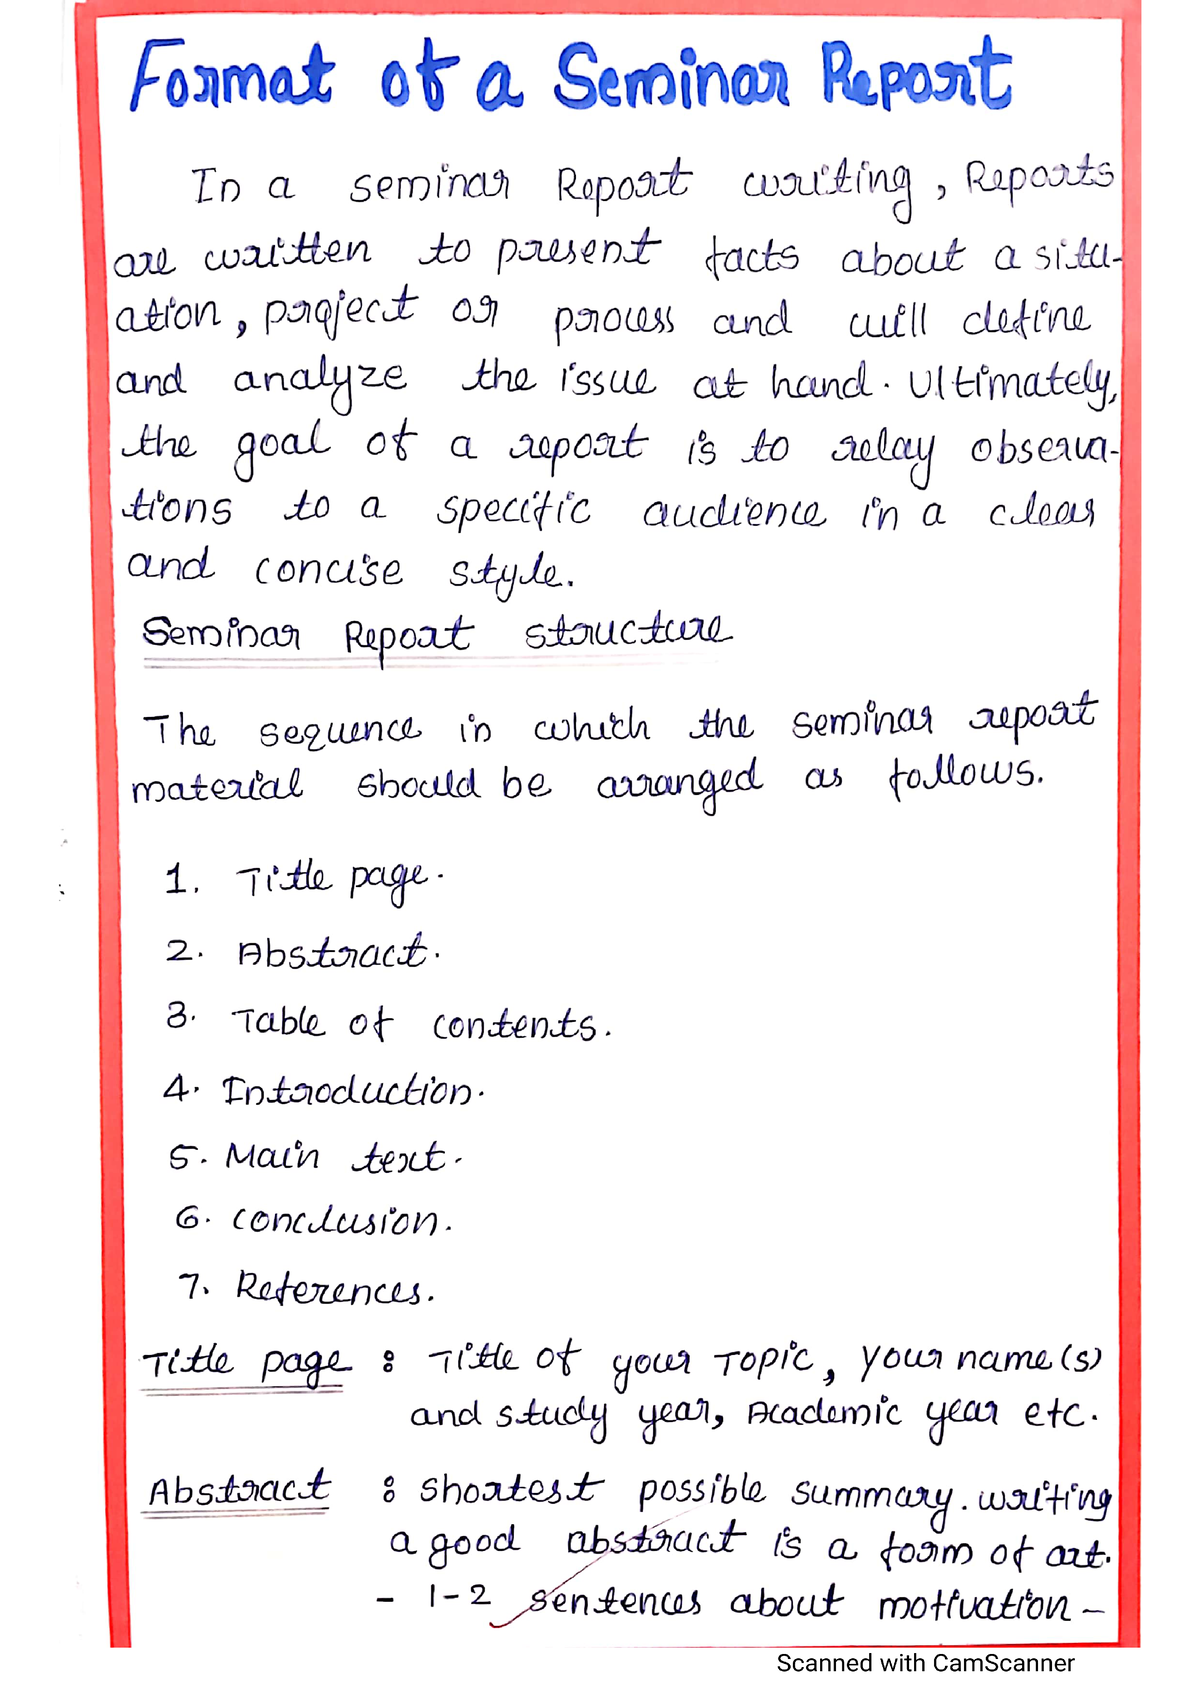 Format of a Seminar Report
In a seminar Report writing, Reports
are written to present facts about a situ-
ation, project or process and will define
and analyze the issue at hand. Ultimately,
the goal of a report is to relay observa-
tions to a specific audience in a clear
and concise style.
Seminar Report structure
The sequence in which the seminar report
material should be arranged as follows.
1. Title page.
2. Abstract.
3. Table of contents.
4. Introduction.
5. Main text.
6. conclusion.
7. References.
Title page : Title of your Topic, your name(s)
and study year, Academic year etc.
Abstract : shortest possible summary. writing
a good abstract is a form of art.
- 1-2 sentences about motivation -
Scanned with CamScanner